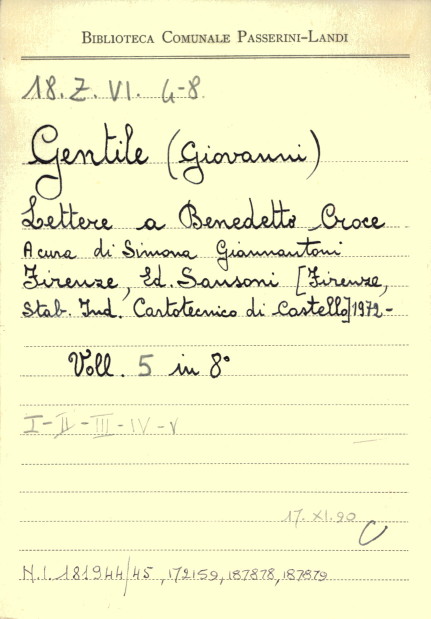 BIBLIOTECA COMUNALE PASSERINI-LANDI
18. Z. VI. 4-8
Gentile (Giovanni)
Lettere a Benedetto Croce
A cura di Simona Giannantoni
Firenze, Ed. Sansoni [Firenze,
Stab. Ind. Cartotecnico di Castello] 1972-
Voll. 5 in 8°
I - II - III - IV - V
17. XI. 90
N.I. 181944/45, 172159, 187878, 187879